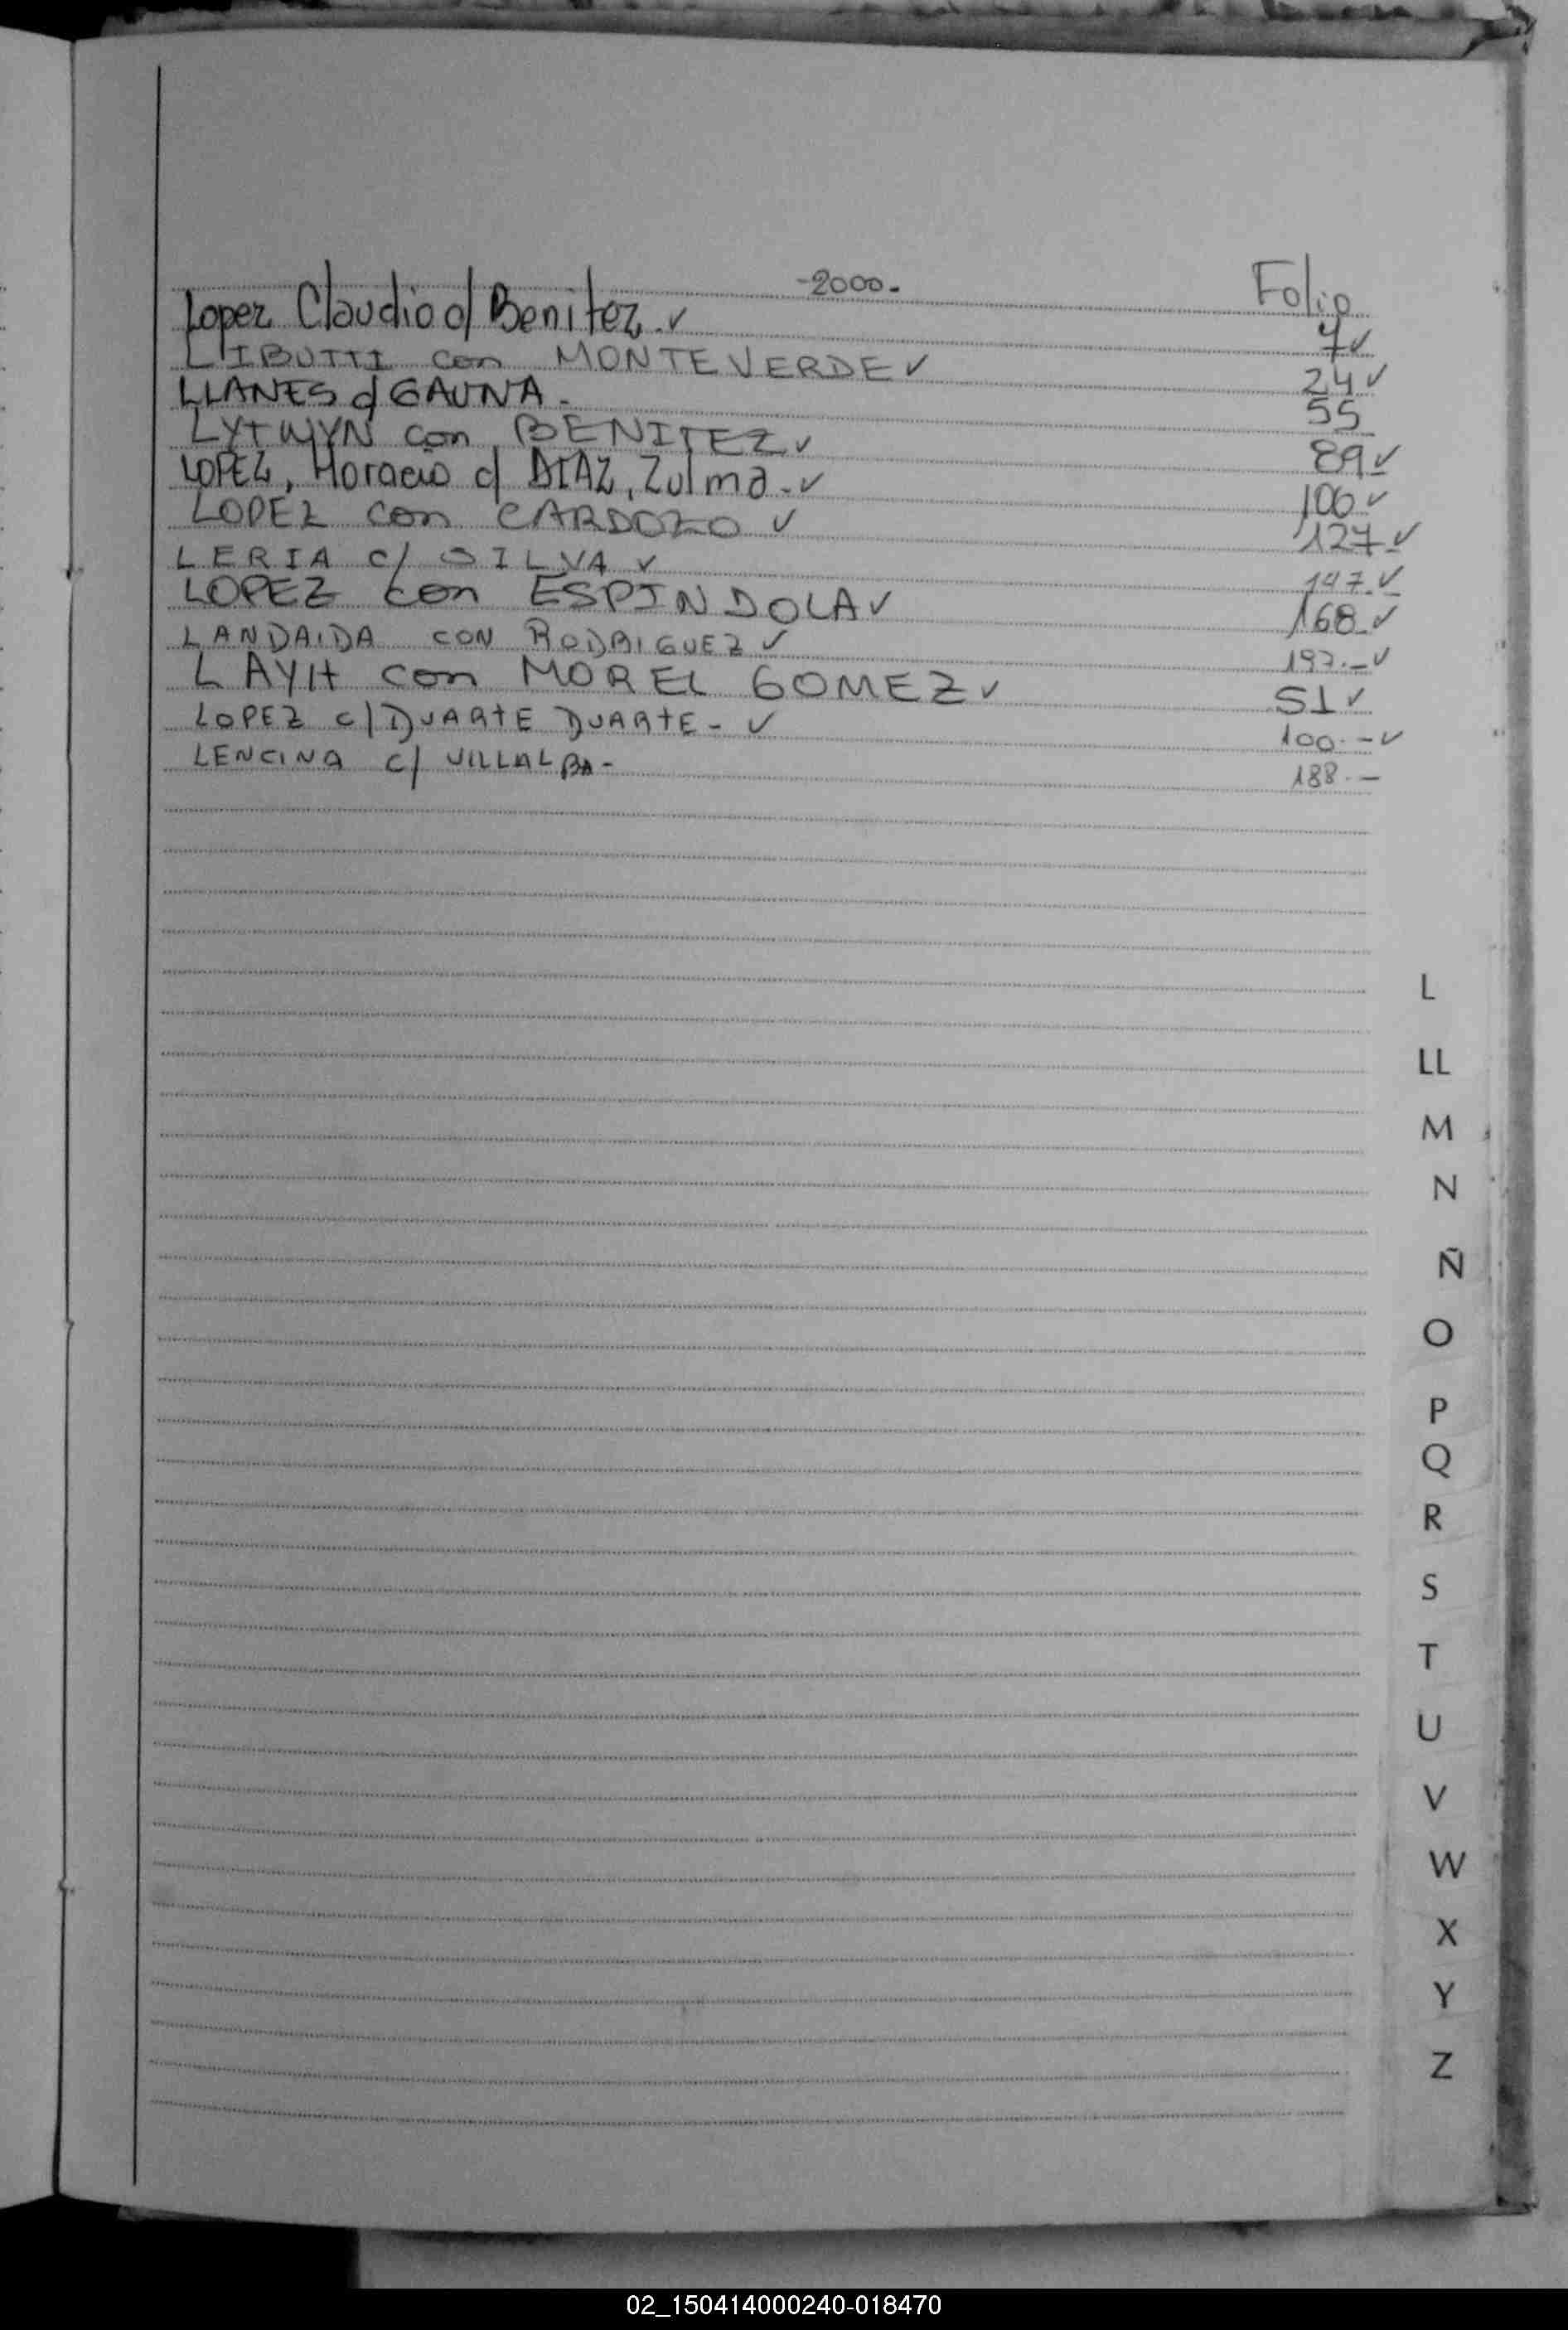 -2000.- Folio
Lopez Claudio c/ Benitez.✓ 7✓
LIBUTTI con MONTEVERDE✓ 24✓
LLANES c/ GAUNA.- 55
LYTWYN con BENITEZ✓ 89✓
LOPEZ, Horacio c/ DIAZ, Zulma.-✓ 106✓
LOPEZ con CARDOZO✓ 127✓
LERIA c/ SILVA✓ 147✓
LOPEZ con ESPINDOLA✓ 168✓
LANDAIDA CON RODRIGUEZ✓ 197.-✓
LAYH con MOREL GOMEZ✓ 51✓
LOPEZ c/ DUARTE DUARTE-✓ 100.-✓
LENCINA c/ VILLALBA- 188.-
L
LL
M
N
Ñ
O
P
Q
R
S
T
U
V
W
X
Y
Z
02_150414000240-018470